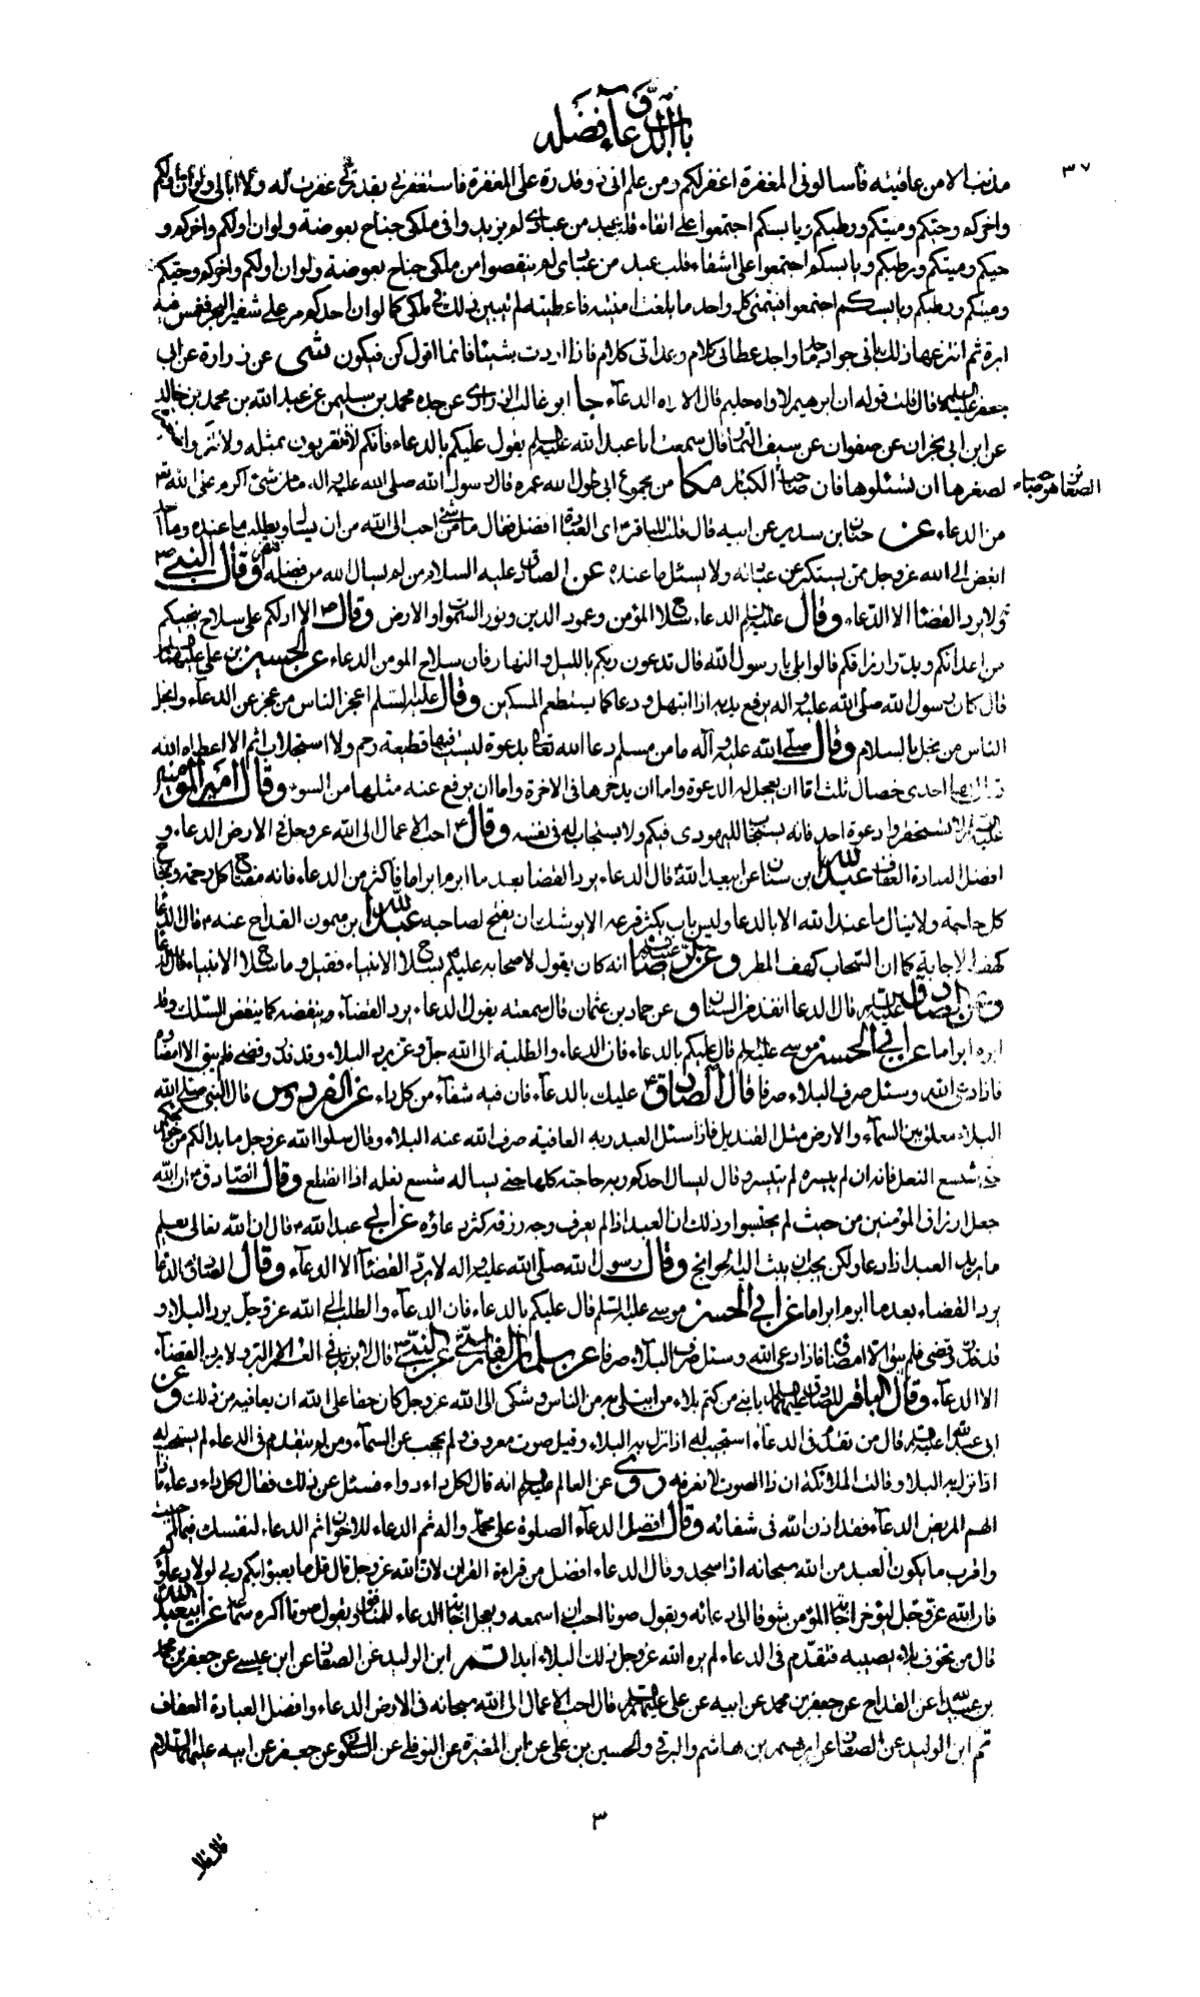 باب الدعاء وفضله
٣٧
مذنب الا من عافيته فأسالونى المغفرة اغفر لكم ومن علم انى ذو قدرة على المغفرة فاستغفرنى بقدرتى غفرت له ولا ابالى ولو ان اولكم
واخركم وحيّكم وميتكم ورطبكم ويابسكم اجتمعوا على اتقاء قلب عبد من عبادى لم يزيدوا فى ملكى جناح بعوضة ولو ان اولكم واخركم و
حيكم وميتكم ورطبكم ويابسكم اجتمعوا على اشقاء قلب عبد من عبادى لم ينقصوا من ملكى جناح بعوضة ولو ان اولكم واخركم وحيّكم
وميتكم ورطبكم ويابسكم اجتمعوا فيتمنى كل واحد ما بلغت امنيته فاعطيته لم يتبين ذلك فى ملكى كما لو ان احدكم مر على شفير البحر فغمس فيه
ابرة ثم انتزعها ذلك بانى جواد ماجد واجد عطائى كلام وعداتى كلام فاذا اردت شيئا فانما اقول كن فيكون شى عن زرارة عن ابى
جعفر عليه السلام قال قلت قوله ان ابرهيم لاواه حليم قال الاواه الدعاء جا ابو غالب الزرارى عن جده محمد بن سليمن عن عبد الله بن محمد بن خالد
عن ابن ابى نجران عن صفوان عن سيف التمار قال سمعت ابا عبد الله عليه السلام يقول عليكم بالدعاء فانكم لا تتقربون بمثله ولا تتركوا
لصغرها ان تسئلوها فان صاحب الكبار مكا من مجموع ابى طول الله عمره قال رسول الله صلى الله عليه واله ما من شئ اكرم على الله تع
من الدعاء عن حنان بن سدير عن ابيه قال قلت للباقر ع اى العبادة افضل فقال ما من شئ احب الى الله من ان يسئل ويطلب ما عنده وما احد
ابغض الى الله عز وجل ممن يستكبر عن عبادته ولا يسئل ما عنده عن الصادق عليه السلام من لم يسال الله من فضله افتقر وقال النبى ص
لا يرد القضاء الا الدعاء وقال عليه السلم الدعاء سلاح المؤمن وعمود الدين ونور السموات والارض وقال ص الا ادلكم على سلاح ينجيكم
من اعدائكم ويدر ارزاقكم قالوا بلى يا رسول الله قال تدعون ربكم بالليل والنهار فان سلاح المومن الدعاء عن الحسين بن على عليهما السلام
قال كان رسول الله صلى الله عليه واله يرفع يديه اذا ابتهل ودعا كما يستطعم المسكين وقال عليه السلم اعجز الناس من عجز عن الدعاء وابخل
الناس من بخل بالسلام وقال صلى الله عليه وآله ما من مسلم دعا الله تعالى بدعوة ليست فيها قطيعة رحم ولا استجلاب اثم الا اعطاه الله
تعالى بها احدى خصال ثلث اما ان يعجل له الدعوة واما ان يدخرها فى الاخرة واما ان يرفع عنه مثلها من السوء وقال امير المومنين
عليه السلم لا تستحقروا دعوة احد فانه يستجاب لليهودى فيكم ولا يستجاب له فى نفسه وقال ع احب الاعمال الى الله عز وجل فى الارض الدعاء و
افضل العبادة العفاف عبد الله بن سنان عن ابيعبد الله ع قال الدعاء يرد القضا بعد ما ابرم ابراما فاكثر من الدعاء فانه مفتاح كل رحمة ونجاح
كل حاجة ولا ينال ما عند الله الا بالدعا وليس باب يكثر قرعه الا يوشك ان يفتح لصاحبه عبد الله بن ميمون القداح عنه ع قال الدعا
كهف الاجابة كما ان السحاب كهف المطر وعن الرضا ع انه كان يقول لاصحابه عليكم بسلاح الانبياء فقيل وما سلاح الانبياء قال الدعا
وعن الصادق عليه السلم قال الدعا انفذ من السنان وعن حماد بن عثمان قال سمعته يقول الدعاء يرد القضآء وينقضه كما ينقض السلك وقد
ابرم ابراما عن ابى الحسن موسى عليه السلم قال عليكم بالدعاء فان الدعاء والطلبة الى الله جل وعز يرد البلاء وقد قدر وقضى فلم يبق الا امضاؤه
فاذا دعى الله وسئل صرف البلاء صرفا قال الصادق ع عليك بالدعآء فان فيه شفآء من كل داء عن الفردوس قال النبى صلى الله
البلاء معلق بين السمآء والارض مثل القنديل فاذا سئل العبد ربه العافية صرف الله عنه البلاء وقال سلوا الله عز وجل ما بدا لكم من حوائجكم
حتى شسع النعل فانه ان لم ييسره لم يتيسر وقال ليسال احدكم ربه حاجته كلها حتى يساله شسع نعله اذا انقطع وقال الصادق ع ان الله
جعل ارزاق المؤمنين من حيث لم يحتسبوا وذلك ان العبد اذا لم يعرف وجه رزقه كثر دعاؤه عن ابى عبد الله ع قال ان الله تعالى يعلم
ما يريد العبد اذا دعا ولكن يحب ان يبث اليه الحوائج وقال رسول الله صلى الله عليه واله لا يرد القضآء الا الدعآء وقال الصادق ع الدعا
يرد القضاء بعد ما ابرم ابراما عن ابى الحسن موسى عليه السلم قال عليكم بالدعاء فان الدعآء والطلب الى الله عز وجل يرد البلاء و
قد قدر وقضى فلم يبق الا امضاؤه فاذا دعى الله وسئل صرف البلآء صرفا عن سلمان الفارسى عن النبى ص قال لا يزيد فى العمر الا البر ولا يرد القضآء
الا الدعآء وقال الباقر للصادق عليهما السلم يا بنى من كتم بلاء من ابتلى به من الناس وشكى الى الله عز وجل كان حقا على الله ان يعافيه من ذلك وعن
ابى عبد الله عليه السلم قال من تقدم فى الدعآء استجيب له اذا نزل به البلاء وقيل صوت معروف ولم يحجب عن السمآء ومن لم يتقدم فى الدعاء لم يستجب له
اذا نزل به البلاء وقالت الملائكة ان ذا الصوت لا نعرفه روى عن العالم عليه السلم انه قال لكل داء دواء فسئل عن ذلك فقال لكل داء دعاء فاذا
الهم المريض الدعآء فقد اذن الله فى شفائه وقال افضل الدعآء الصلوة على محمد واله ثم الدعاء للاخوان ثم الدعاء لنفسك فيما احببت
واقرب ما يكون العبد من الله سبحانه اذا سجد وقال الدعاء افضل من قراءة القران لان الله عز وجل قال قل ما يعبؤا بكم ربى لولا دعاؤكم
فان الله عز وجل ليؤخر اجابة المؤمن شوقا الى دعائه ويقول صوتا احب ان اسمعه ويعجل اجابة الدعاء للمنافق ويقول صوتا اكره سماعه عن ابيعبد الله
قال من تخوف بلاء يصيبه فتقدم فى الدعاء لم يره الله عز وجل ذلك البلاء ابدا ابن الوليد عن الصفار عن ابن عيسى عن جعفر بن محمد
بن عبيد الله عن القداح عن جعفر بن محمد عن ابيه عن على عليه السلم قال احب الاعمال الى الله سبحانه فى الارض الدعاء وافضل العبادة العفاف
ثم ابن الوليد عن الصفار عن ابرهيم بن هاشم والبرقى والحسين بن على عن ابن المغيرة عن النوفلى عن السكونى عن جعفر عن ابيه عليهما السلام
٣
قال قال